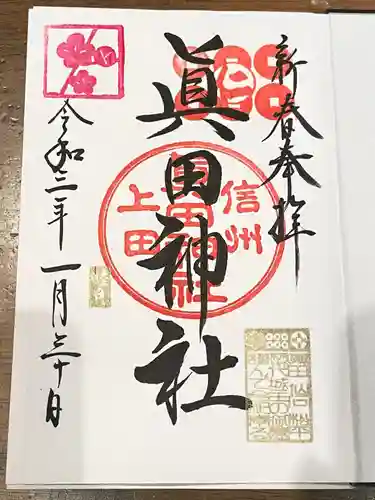 新春奉拝
眞田神社
信州
上田
眞田神社
令和三年一月三十日